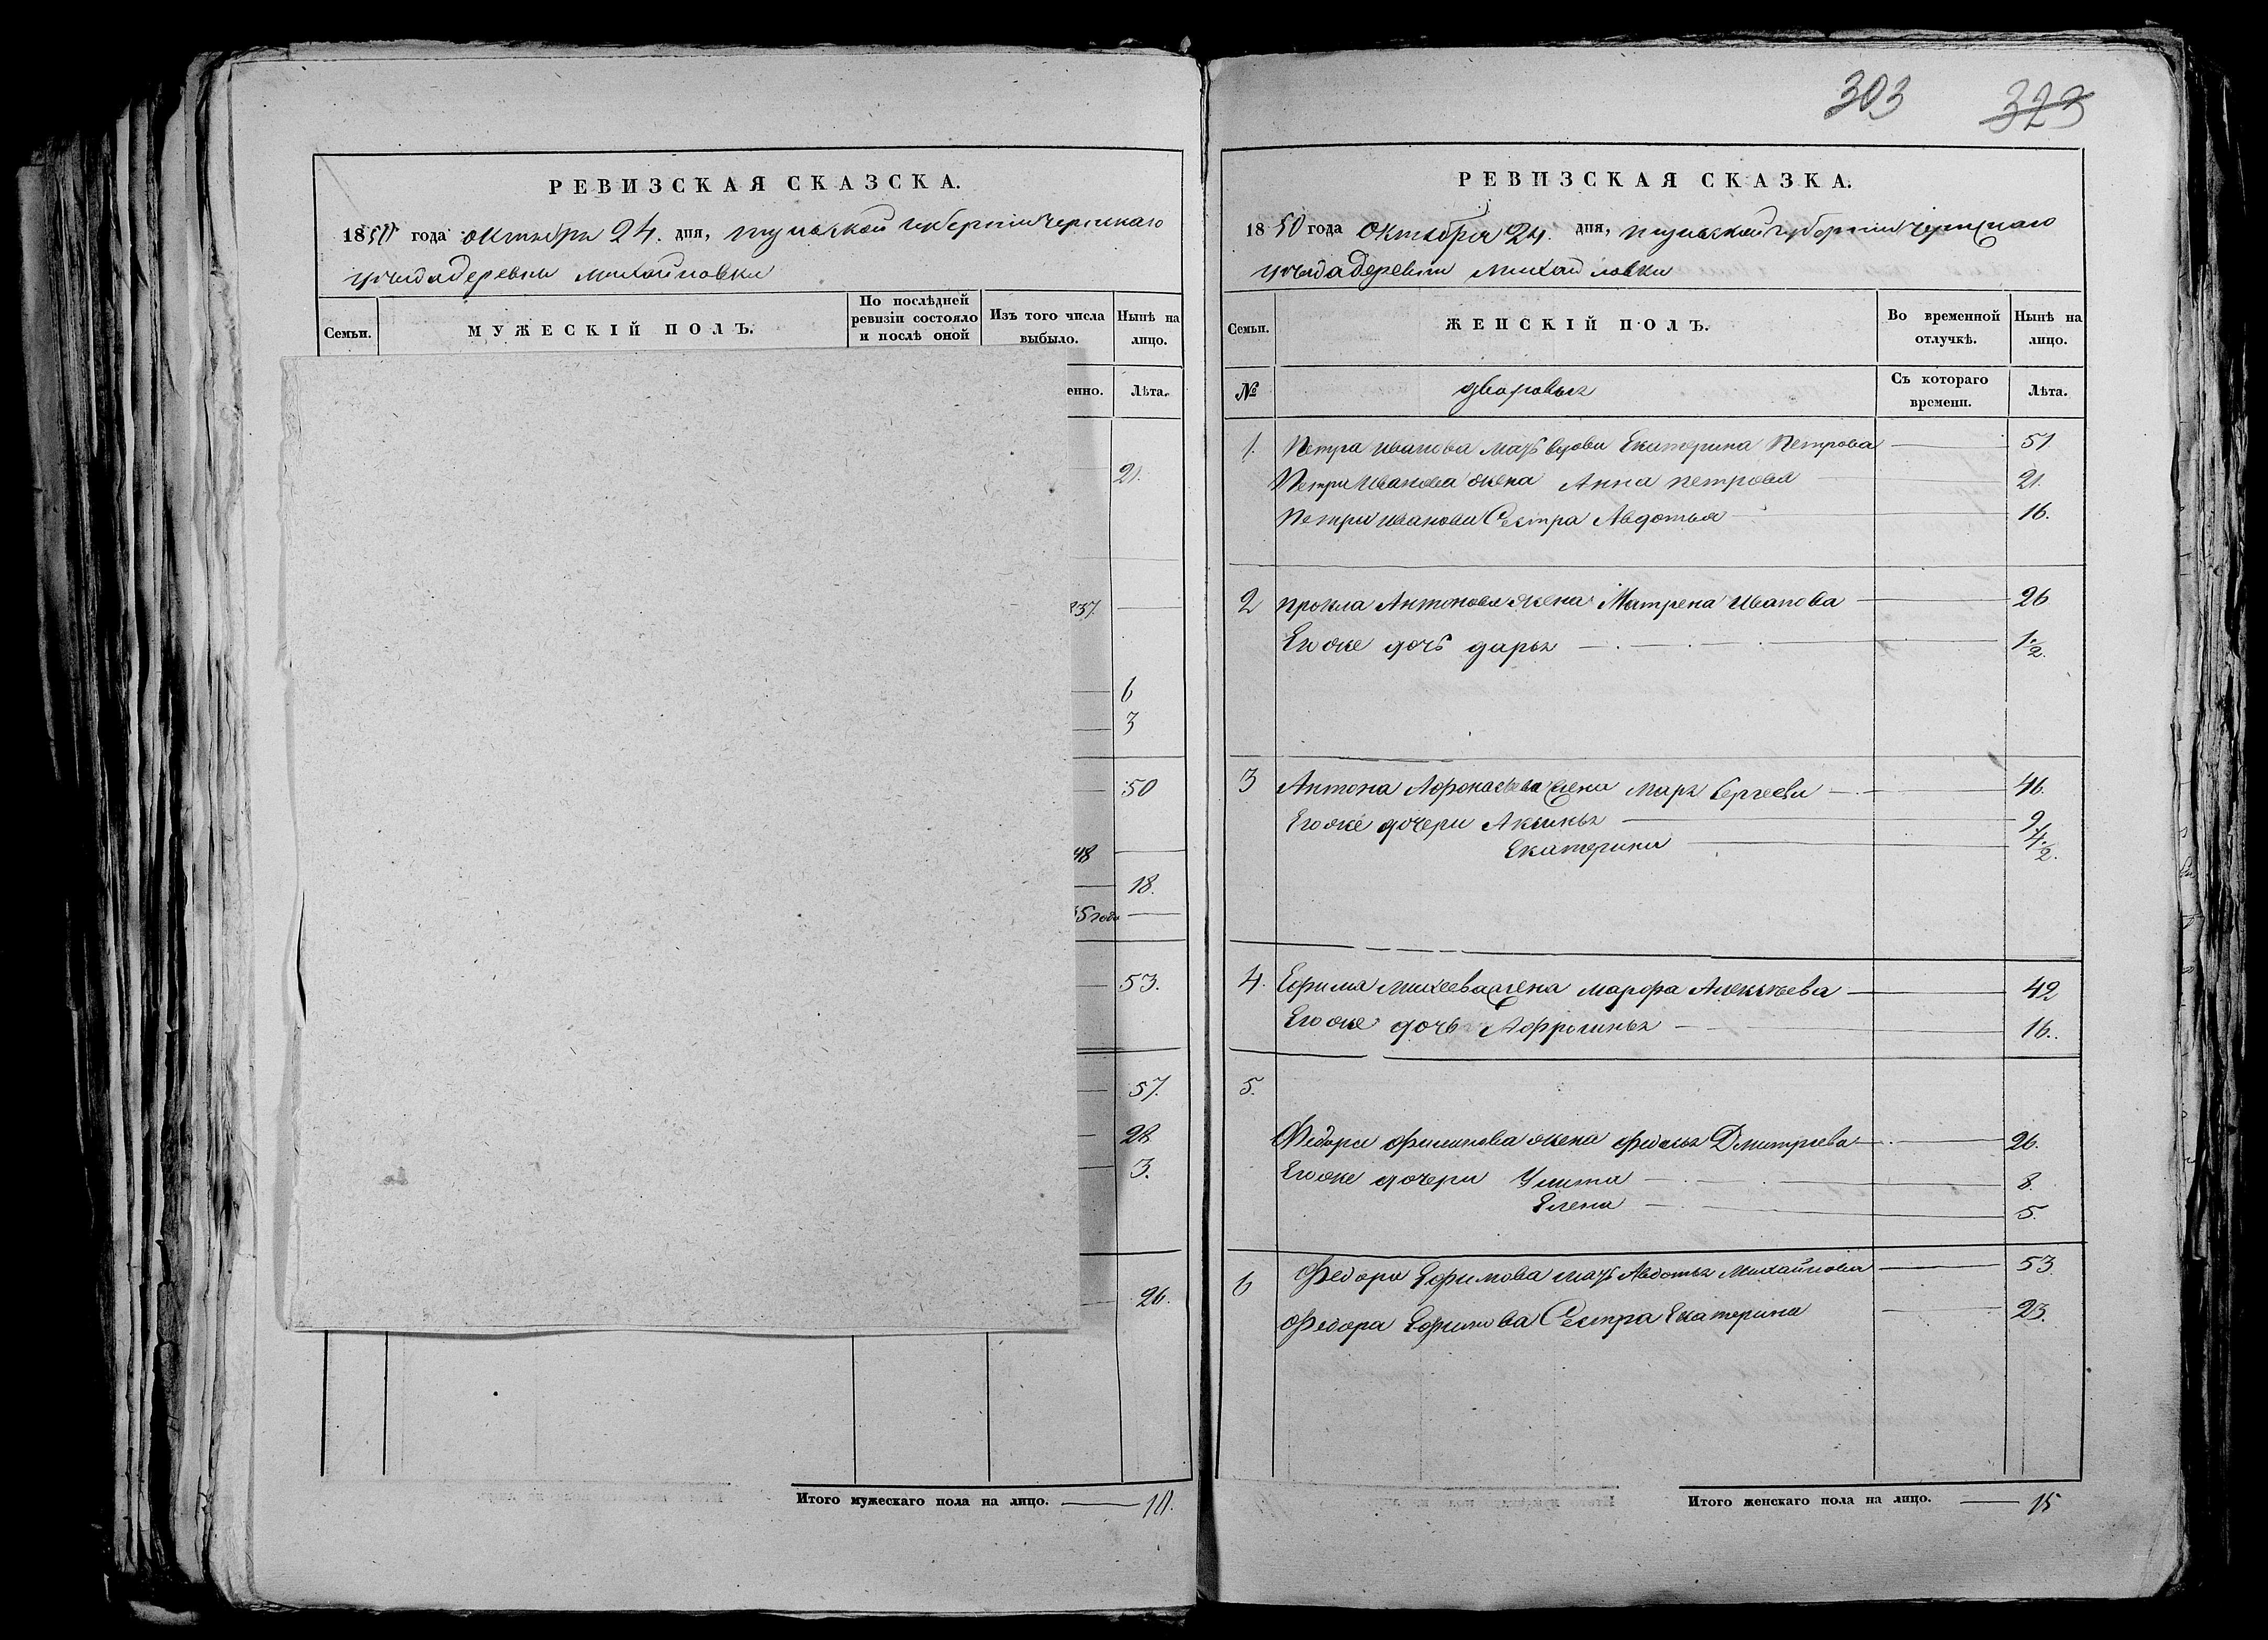 303 323
РЕВИЗСКАЯ СКАЗСКА.
1850 года октября 24. дня, тульской губернии Чернскаго
уезда деревни Михайловки
Семьи.
МУЖЕСКІЙ ПОЛЪ.
По послѣдней ревизіи состояло и послѣ оной
Изъ того числа выбыло.
Нынѣ на лицо.
енно.
Лѣта.
21.
837.
6
3
50
48
18.
45 года
53.
57.
28
3.
26.
Итого мужескаго пола на лицо. 10.
РЕВИЗСКАЯ СКАЗКА.
1850 года Октября 24. дня, тульской губернии Чернскаго
уезда деревни Михайловки
Семьи.
ЖЕНСКІЙ ПОЛЪ.
Во временной отлучкѣ.
Нынѣ на лицо.
№
дворовыя
Съ котораго времени.
Лѣта.
1. Петра Иванова мать вдова Екатерина Петрова 51
Петра Иванова жена Анна Петрова 21.
Петра Иванова Сестра Авдотья 16.
2 Прокла Антонова жена Матрена Иванова 26
Его же дочь Дарья 1/2.
3 Антона Афонасьева жена Марья Сергеева 46.
Его же дочери Аксинья 9
Екатерина 4. 1/2.
4. Ефима Михеева жена Марфа Алексеева 42
Его же дочь Афросинья 16.
5.
Федора Филипова жена Федосья Дмитриева 26.
Его же дочери Улита 8.
Елена 5.
6 Федора Ефимова мать Авдотья Михайлова 53.
Федора Ефимова Сестра Екатерина 23.
Итого женскаго пола на лицо. 15